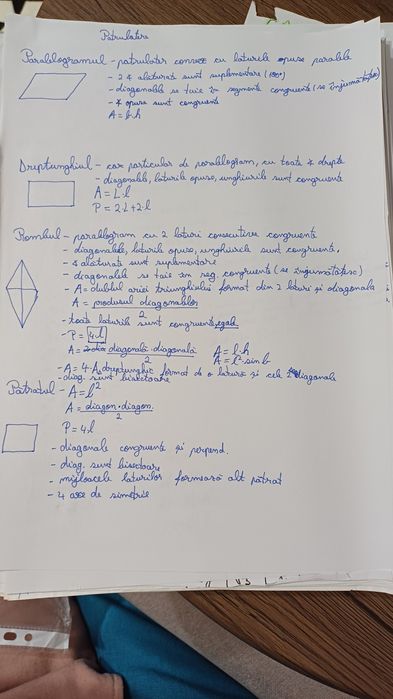 Patrulatere
Paralelogramul - patrulater convex cu laturile opuse paralele
- 2 ∢ alăturate sunt suplementare (180°)
- diagonalele se taie în segmente congruente (se înjumătățesc)
- ∢ opuse sunt congruente
A = b·h
Dreptunghiul - caz particular de paralelogram, cu toate ∢ drepte
- diagonalele, laturile opuse, unghiurile sunt congruente
A = L·l
P = 2·L+2·l
Rombul - paralelogram cu 2 laturi consecutive congruente
- diagonalele, laturile opuse, unghiurile sunt congruente,
- ∢ alăturate sunt suplimentare
- diagonalele se taie în seg. congruente (se înjumătățesc)
- A = dublul ariei triunghiului format din 2 laturi și diagonala
A = produsul diagonalelor
2
- toate laturile sunt congruente, egale
- P = 4·l
A = diagonală·diagonală A = b·h
2 A = l²·sin
- A = 4·A dreptunghic format de o latură și cele 2 diagonale
- diag. sunt bisectoare
Pătratul - A = l²
A = diagon·diagon.
2
P = 4·l
- diagonale congruente și perpend.
- diag. sunt bisectoare
- mijloacele laturilor formează alt pătrat
- 4 axe de simetrie